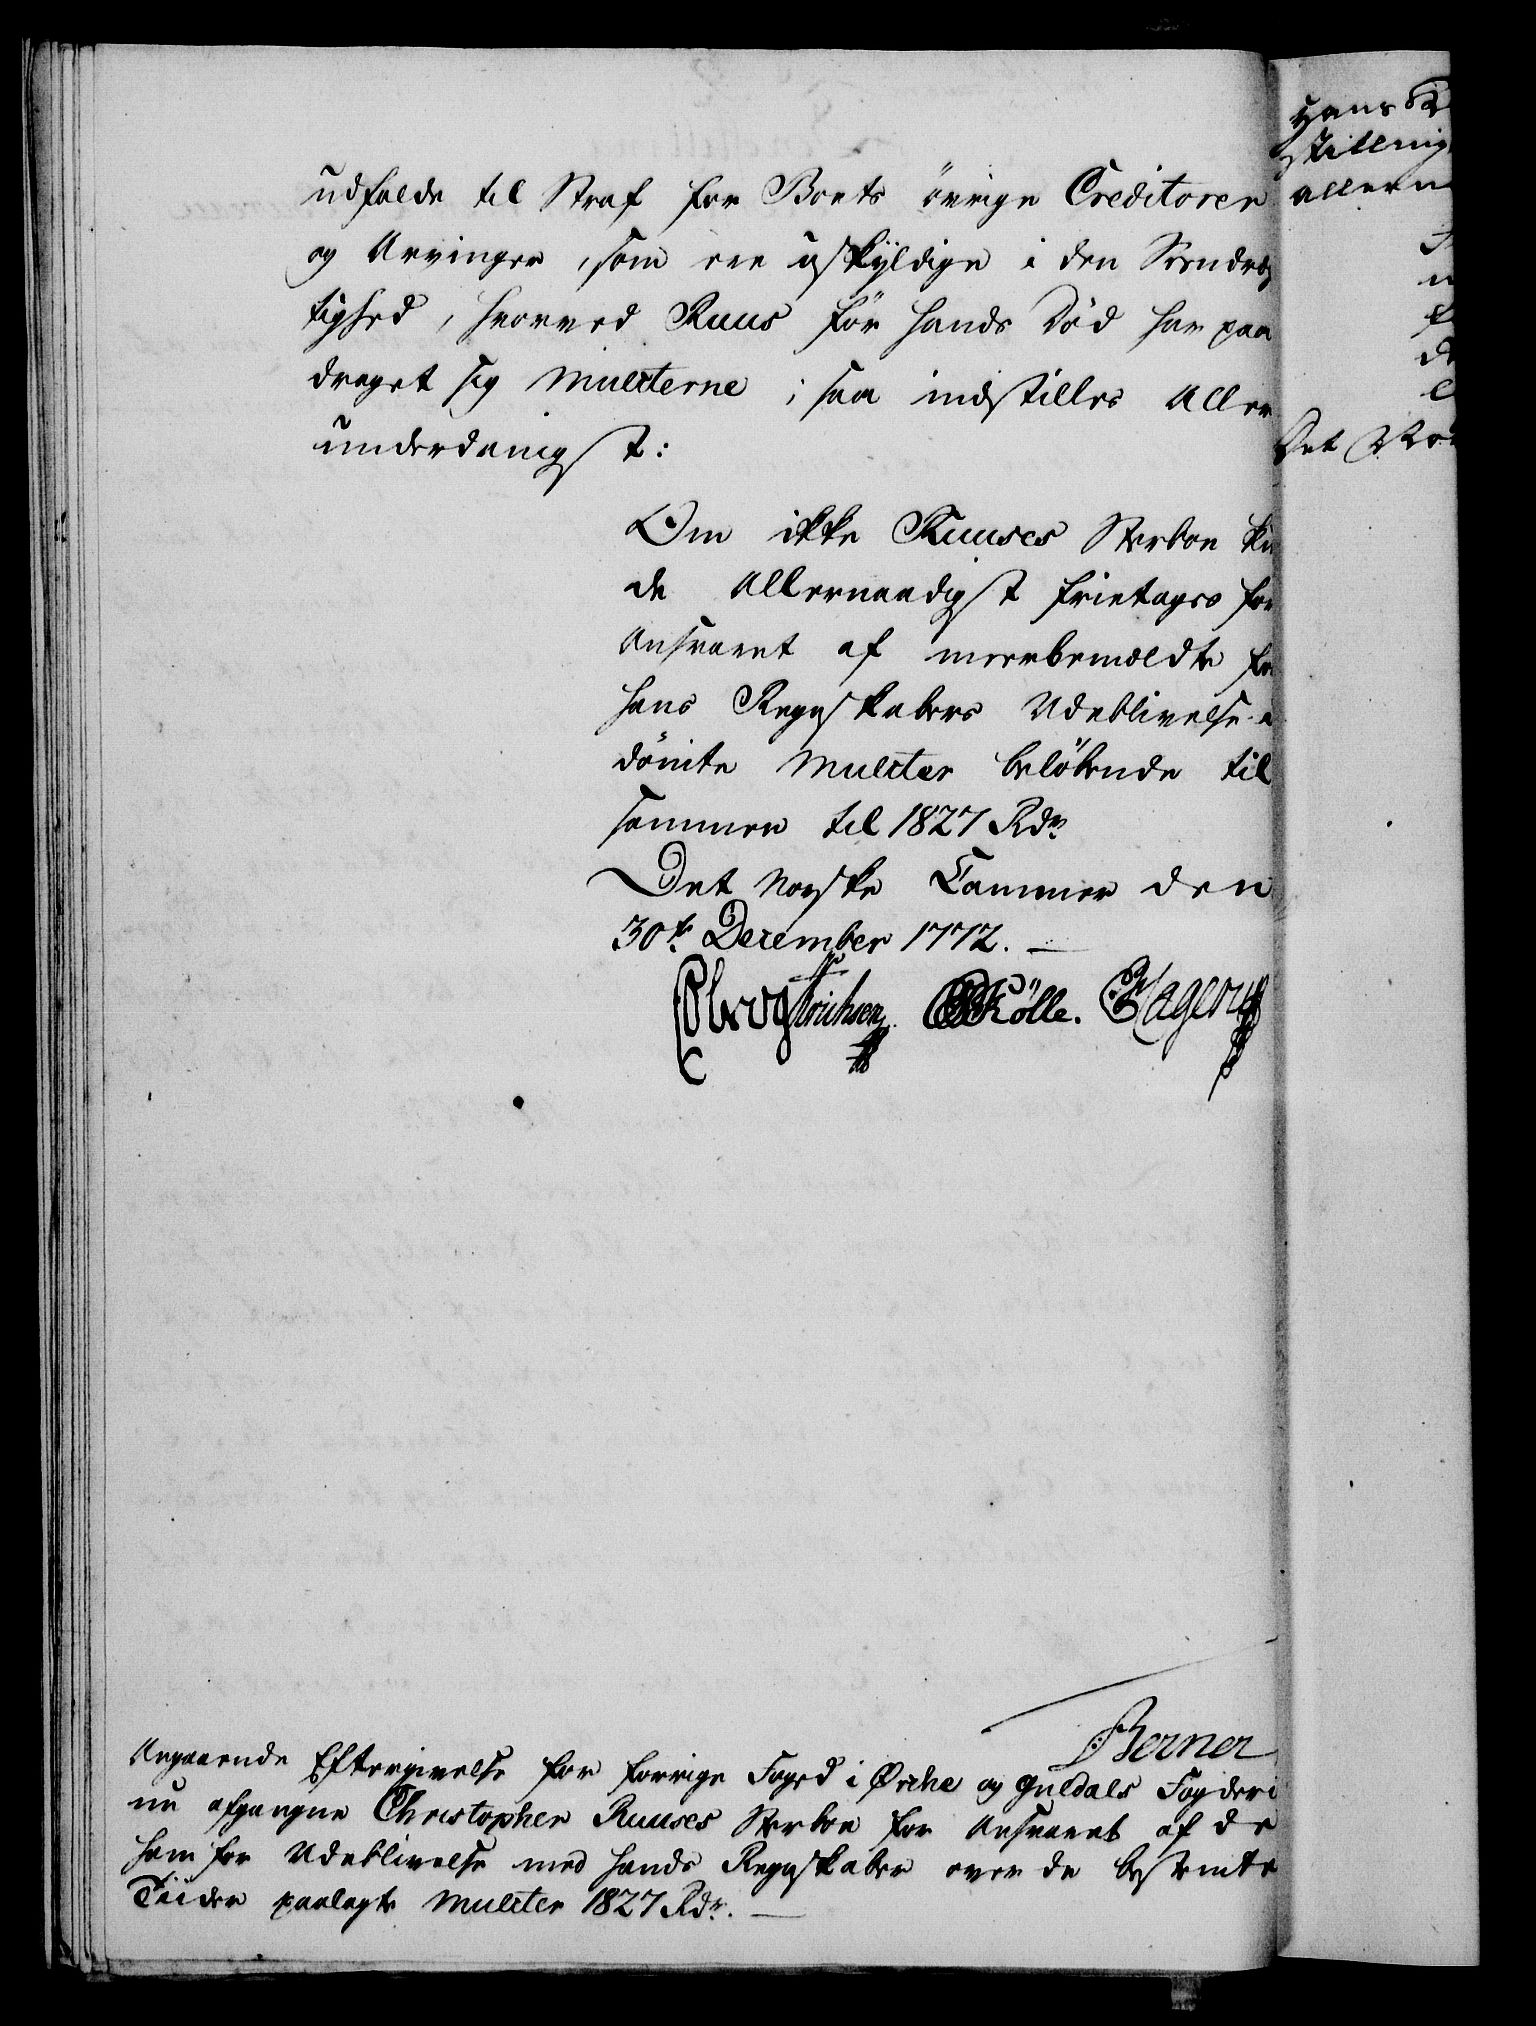 udfalde til Straf for Boets övrige Creditorer
og Arvinger, som ere uskÿldige i den Seendræg
tighed, hvorved Ruus för hands Död har paa
draget sig Mulcterne; saa indstilles Aller
underdanigst:
Om ikke Ruuses Sterboe kun
de Allernaadigst frietages for
Ansvaret af meerbemældte for
hans Regnskabers Udeblivelse i
dömte Mulcter belöbende til
sammen til 1827 Rdr
Det Norske Cammer den
30te December 1772.
Erichsen. Kölle. Hagerup
Berner
Angaaende Eftergivelse for forrige Foged i Ørche og Guldals Fogderi
nu afgangne Christopher Ruuses Sterboe for Ansvaret af de
ham for Udeblivelse med hands Regnskaber over de bestemte
Tiider paalagte Mulcter 1827 Rdr.
Hans
stilling
allern
Det